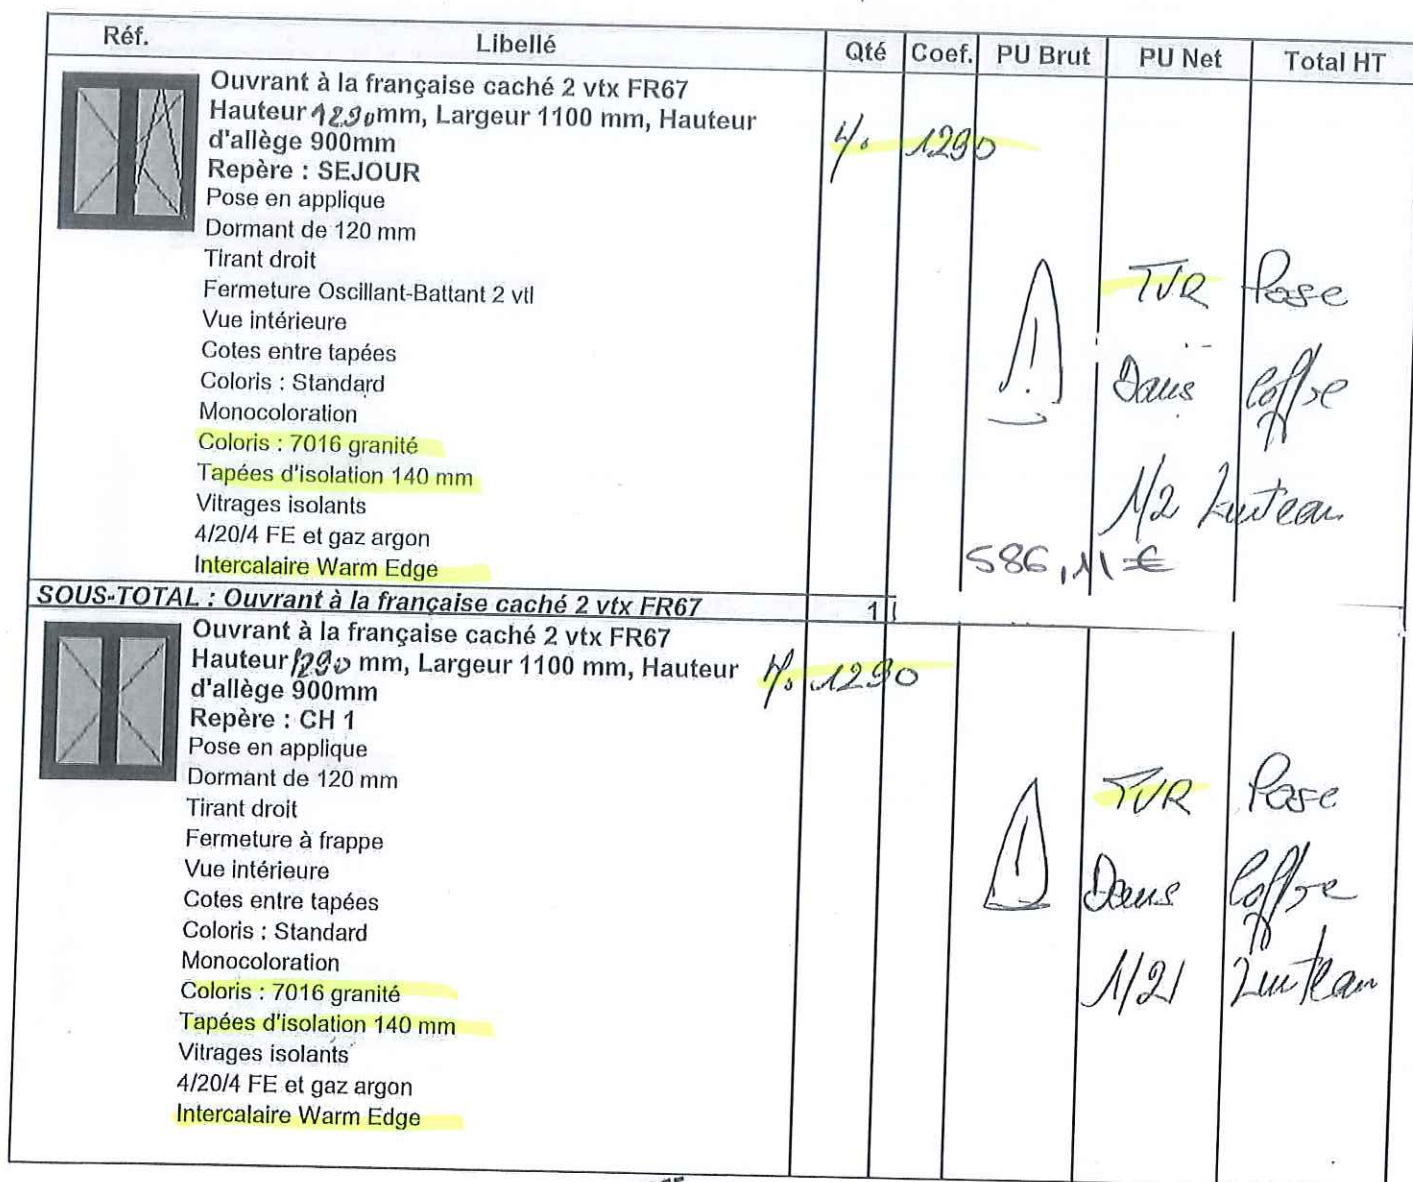 Réf. Libellé Qté Coef. PU Brut PU Net Total HT
Ouvrant à la française caché 2 vtx FR67
Hauteur 1290mm, Largeur 1100 mm, Hauteur
d'allège 900mm
1290
Repère : SEJOUR
Pose en applique
Dormant de 120 mm
Tirant droit
TVR Pose
Fermeture Oscillant-Battant 2 vtl
Vue intérieure
Cotes entre tapées
Dans Coffre
Coloris : Standard
Monocoloration
Coloris : 7016 granité
Tapées d'isolation 140 mm
Vitrages isolants
1/2 Linteau
4/20/4 FE et gaz argon
Intercalaire Warm Edge
586,11 €
SOUS-TOTAL : Ouvrant à la française caché 2 vtx FR67 1
Ouvrant à la française caché 2 vtx FR67
Hauteur 1290 mm, Largeur 1100 mm, Hauteur
1290
d'allège 900mm
Repère : CH 1
Pose en applique
Dormant de 120 mm
TVR Pose
Tirant droit
Fermeture à frappe
Vue intérieure
Cotes entre tapées
Dans Coffre
Coloris : Standard
Monocoloration
Coloris : 7016 granité
1/2 Linteau
Tapées d'isolation 140 mm
Vitrages isolants
4/20/4 FE et gaz argon
Intercalaire Warm Edge